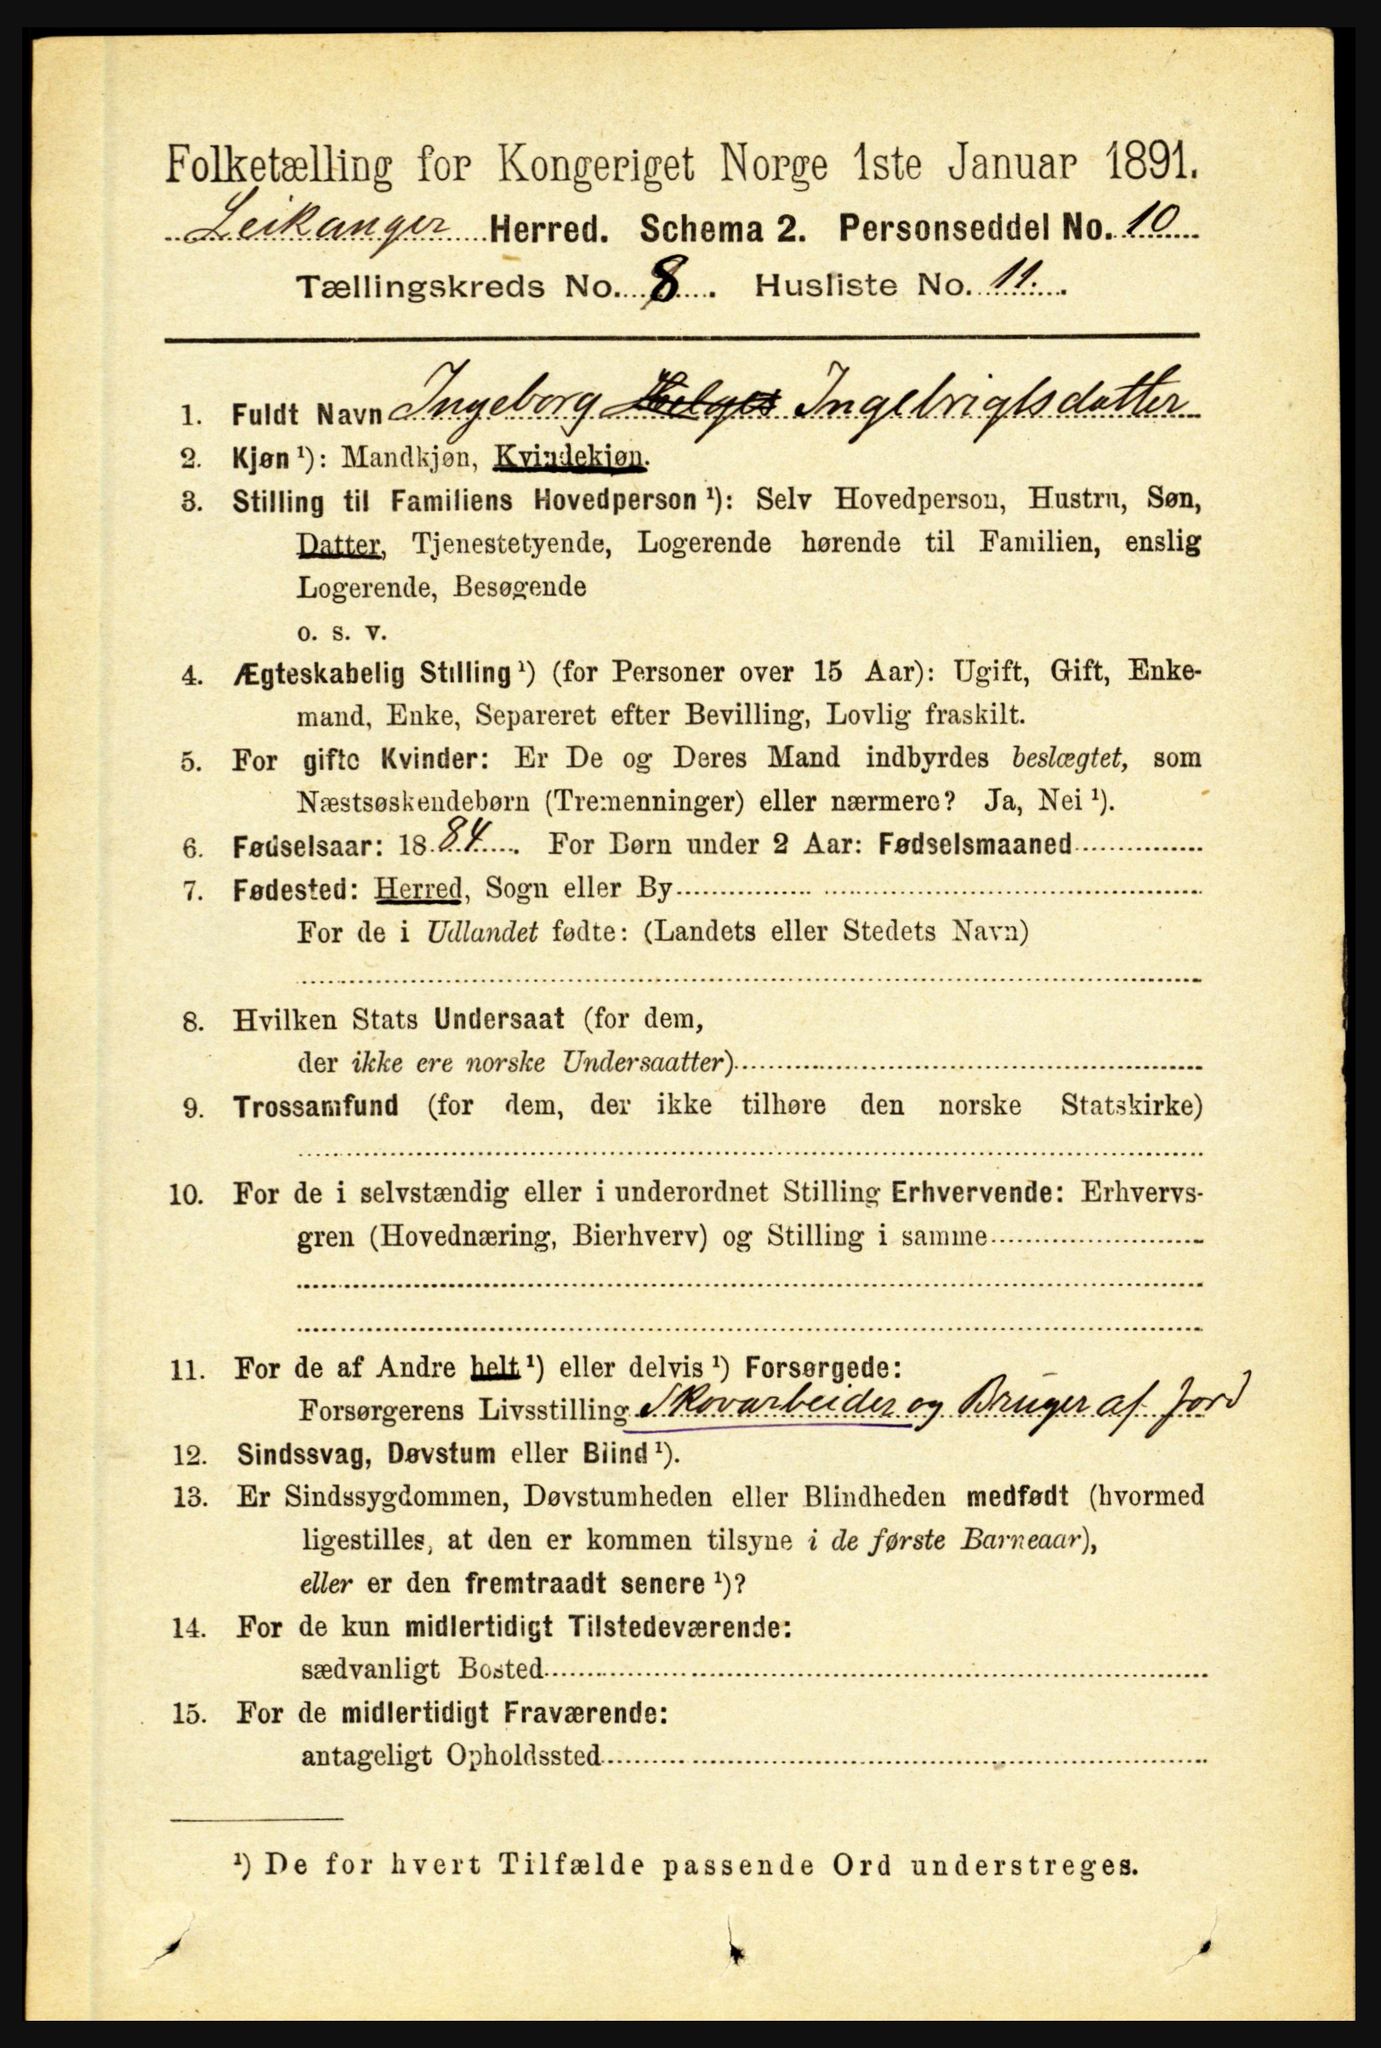 Folketælling for Kongeriget Norge 1ste Januar 1891.
Leikanger Herred. Schema 2. Personseddel No. 10
Tællingskreds No. 8. Husliste No. 11.
1. Fuldt Navn Ingeborg Helges Ingebrigtsdatter
2. Kjøn ¹): Mandkjøn, Kvindekjøn.
3. Stilling til Familiens Hovedperson ¹): Selv Hovedperson, Hustru, Søn,
Datter, Tjenestetyende, Logerende hørende til Familien, enslig
Logerende, Besøgende
o. s. v.
4. Ægteskabelig Stilling ¹) (for Personer over 15 Aar): Ugift, Gift, Enke-
mand, Enke, Separeret efter Bevilling, Lovlig fraskilt.
5. For gifte Kvinder: Er De og Deres Mand indbyrdes beslægtet, som
Næstsøskendebørn (Tremenninger) eller nærmere? Ja, Nei ¹).
6. Fødselsaar: 1884. For Børn under 2 Aar: Fødselsmaaned
7. Fødested: Herred, Sogn eller By
For de i Udlandet fødte: (Landets eller Stedets Navn)
8. Hvilken Stats Undersaat (for dem,
der ikke ere norske Undersaatter)
9. Trossamfund (for dem, der ikke tilhøre den norske Statskirke)
10. For de i selvstændig eller i underordnet Stilling Erhvervende: Erhvervs-
gren (Hovednæring, Bierhverv) og Stilling i samme
11. For de af Andre helt ¹) eller delvis ¹) Forsørgede:
Forsørgerens Livsstilling Skovarbeider og Bruger af Jord
12. Sindssvag, Døvstum eller Blind ¹).
13. Er Sindssygdommen, Døvstumheden eller Blindheden medfødt (hvormed
ligestilles, at den er kommen tilsyne i de første Barneaar),
eller er den fremtraadt senere ¹)?
14. For de kun midlertidigt Tilstedeværende:
sædvanligt Bosted
15. For de midlertidigt Fraværende:
antageligt Opholdssted
¹) De for hvert Tilfælde passende Ord understreges.